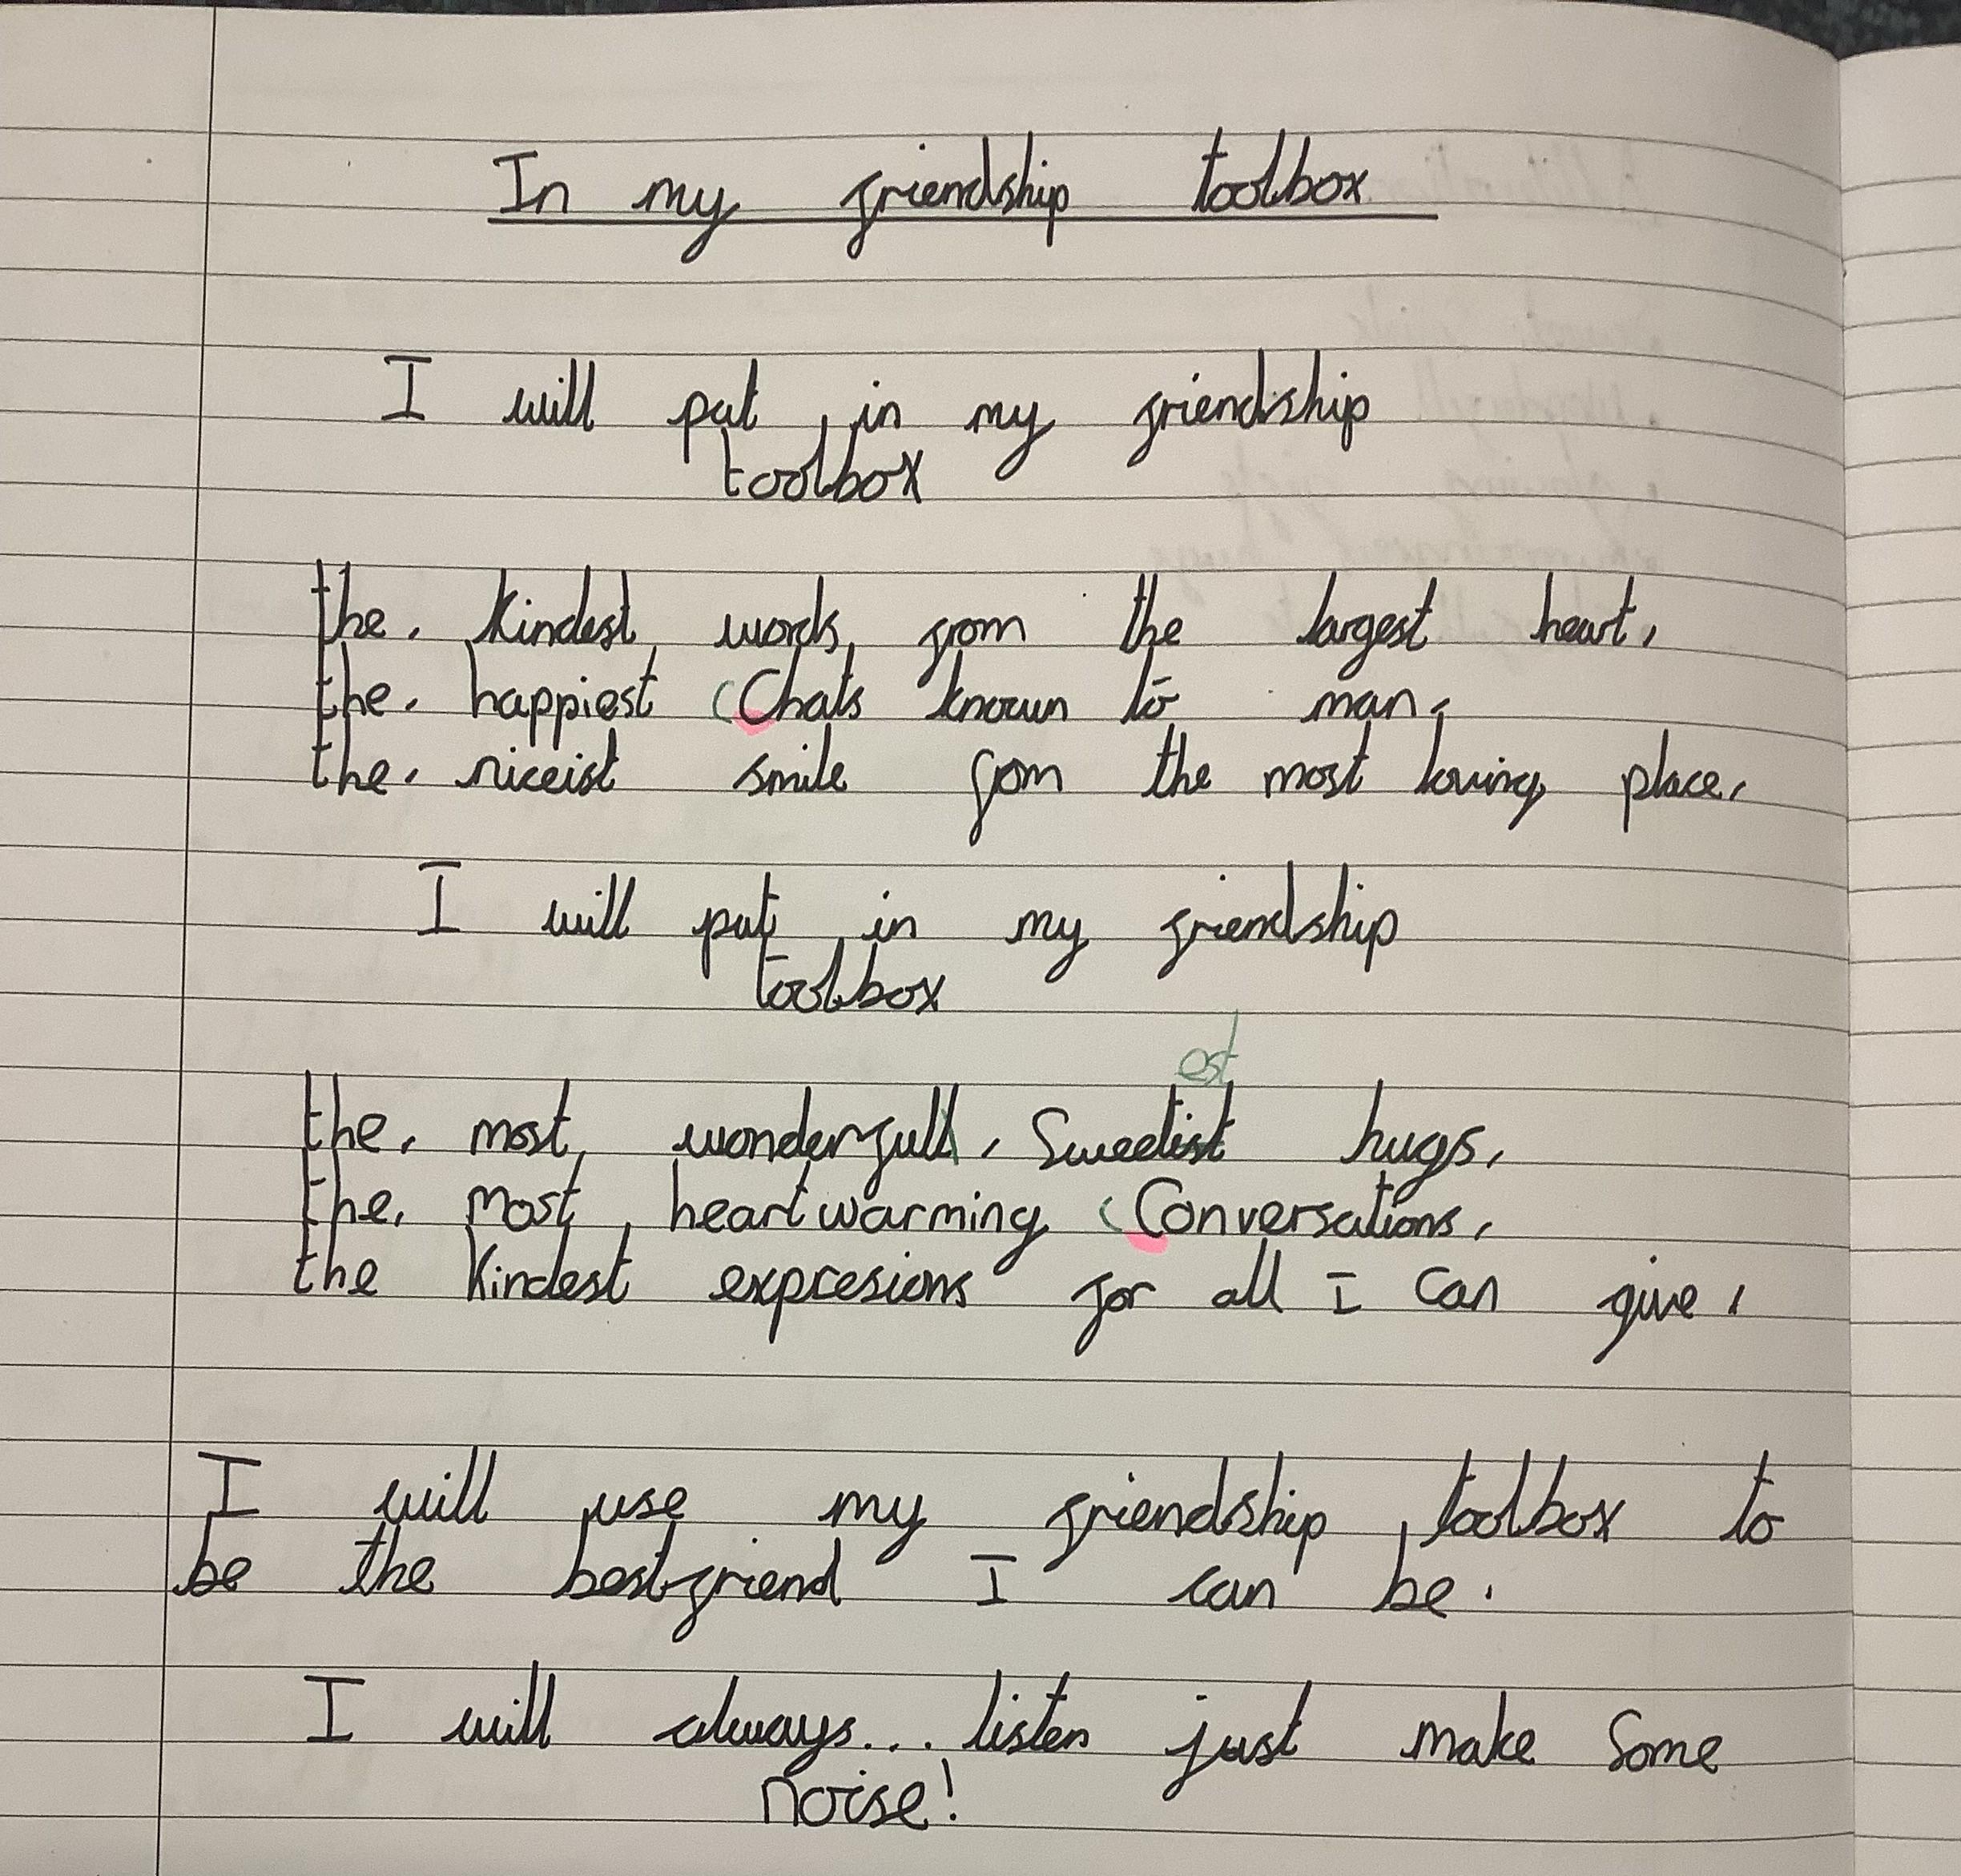 In my friendship toolbox
I will put in my friendship
toolbox
the, kindest words from the largest heart,
the, happiest Chats known to man,
the, niceist smile from the most loving place,
I will put in my friendship
toolbox
est
the, most wonderfull, Sweetist hugs,
the, most heartwarming Conversations,
the kindest expresions for all I can give,
I will use my friendship toolbox to
be the bestfriend I can be.
I will always... listen just make some
noise!